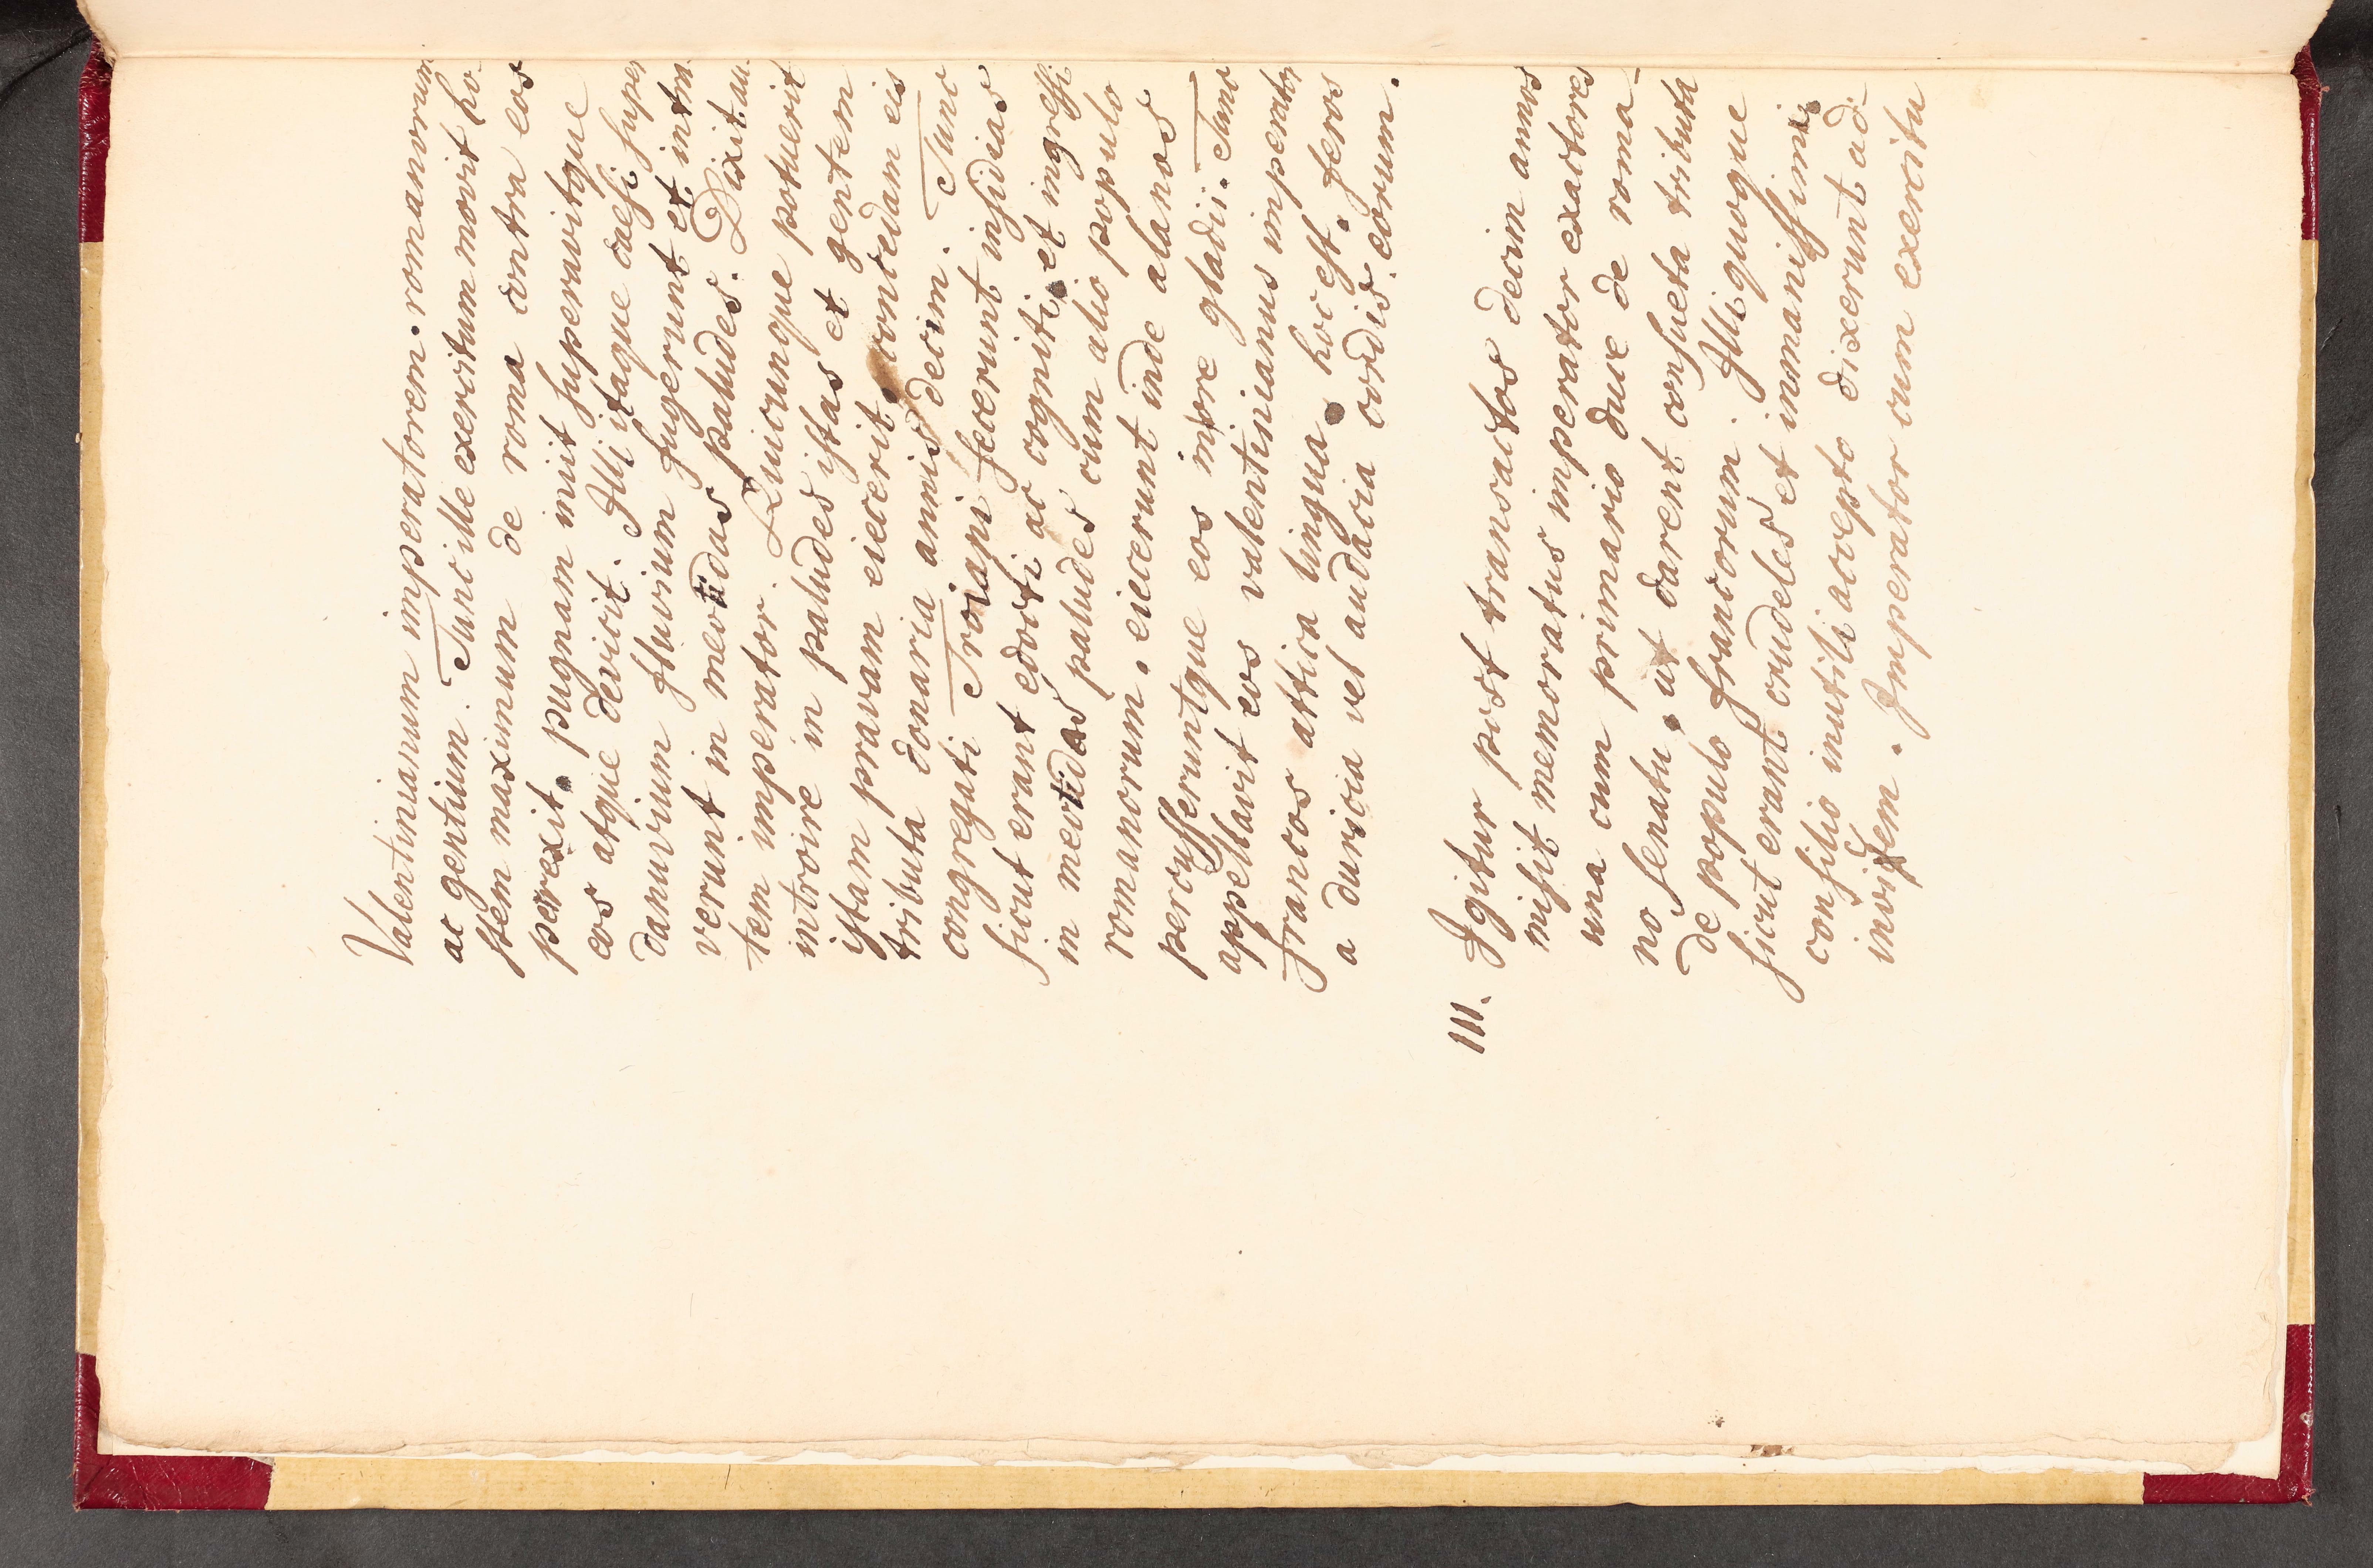 Valentinianum imperatorem. romanorum
ac gentium. Tunc ille exercitum movit ho-
stem maximum de roma contra eos
perrexit. pugnam iniit superavitque
eos atque devicit. Illi itaque caesi super
danuvium fluvium fugerunt et intra-
verunt in meotidas paludes. Dixit au-
tem imperator. Quicunque potuerit
introire in paludes istas et gentem
istam pravam eiecerit. concedam eis
tributa donaria annis decim. Tunc
congregati Troiani fecerunt insidias
sicut erant edocti ac cogniti. et ingressi
in meotidas paludes cum alio populo
romanorum. eiecerunt inde alanos
percusseruntque eos in ore gladii. Tunc
appellavit eos valentinianus imperator
francos attica lingua. hoc est. feros
a duricia vel audacia cordis. eorum.
III. Igitur post transactos decim annos
misit memoratus imperator exactores
una cum primario duce de roma-
no senatu. ut darent consueta tributa
de populo francorum. Illi quoque
sicut erant crudeles et inmanissimi.
consilio inutili accepto dixerunt ad-
invicem. Imperator cum exercitu